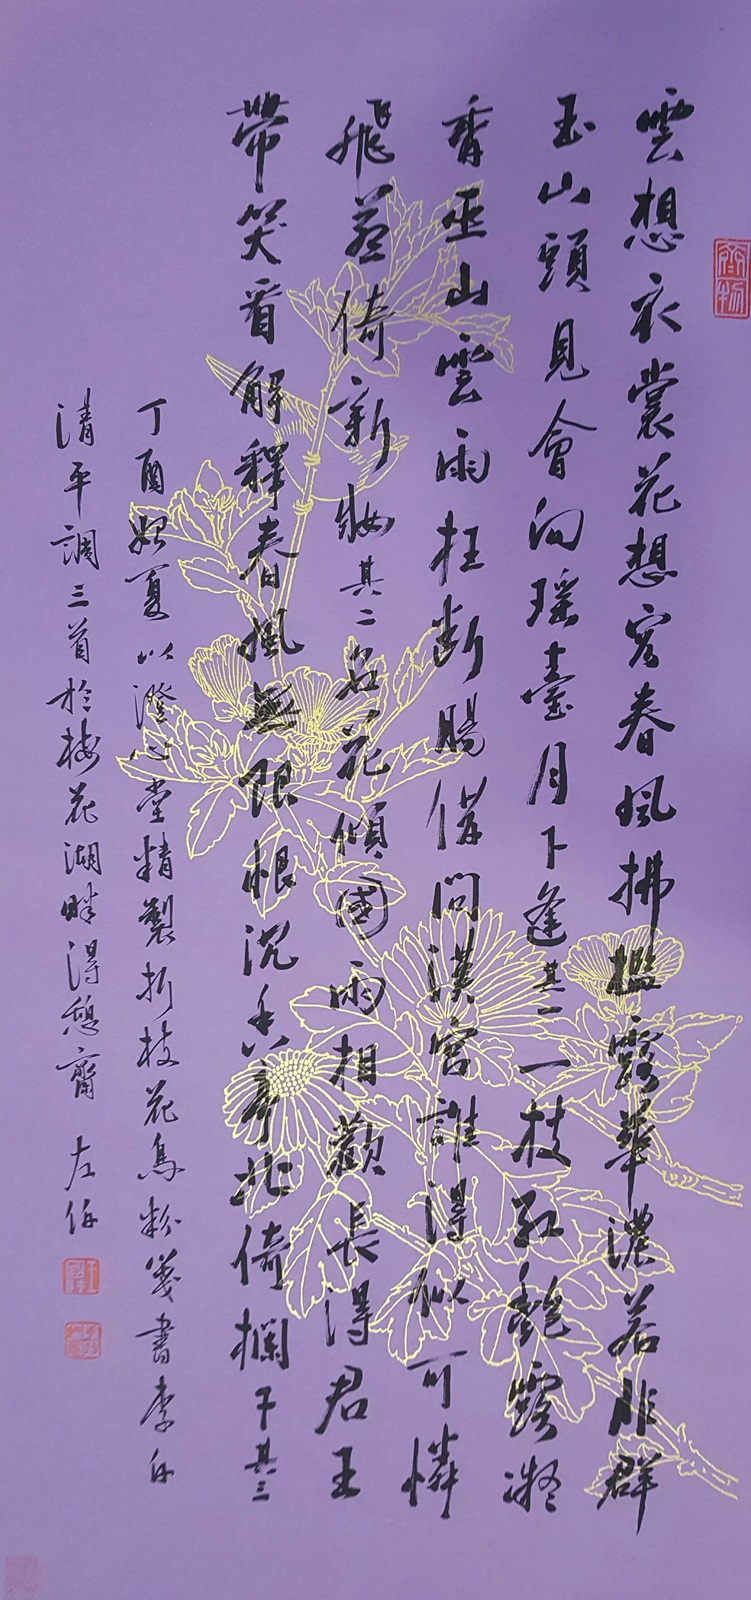 齊物
雲想衣裳花想容春風拂檻露華濃若非群
玉山頭見會向瑤臺月下逢其一一枝紅艷露凝
香巫山雲雨枉斷腸借問漢宮誰得似可憐
飛燕倚新妝其二名花傾國兩相歡長得君王
帶笑看解釋春風無限恨沉香亭北倚欄干其三
丁酉始夏以澄心堂精製折枝花鳥粉箋書李白
清平調三首於梅花湖畔得憩齋 左